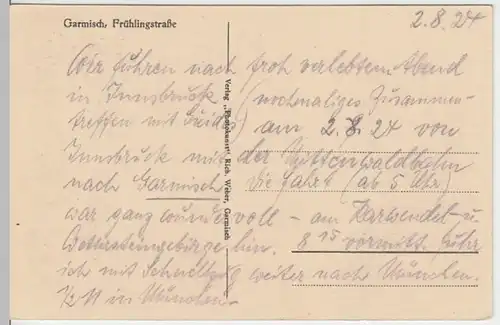 Garmisch, Frühlingstraße
2.8.24
Wir fuhren nach froh verlebtem Abend
in Innsbruck (nochmaliges Zusammen-
treffen mit Guido) am 2.8.24 von
Innsbruck mit der Mittenwaldbahn
nach Garmisch. Die Fahrt (ab 5 Uhr)
war ganz wundervoll - am Karwendel- u.
Wettersteingebirge hin. 8 15 vormitt. fuhr
ich mit Schnellzug weiter nach München.
1/2 11 in München.
Verlag „Photokunst“, Rich. Weber, Garmisch